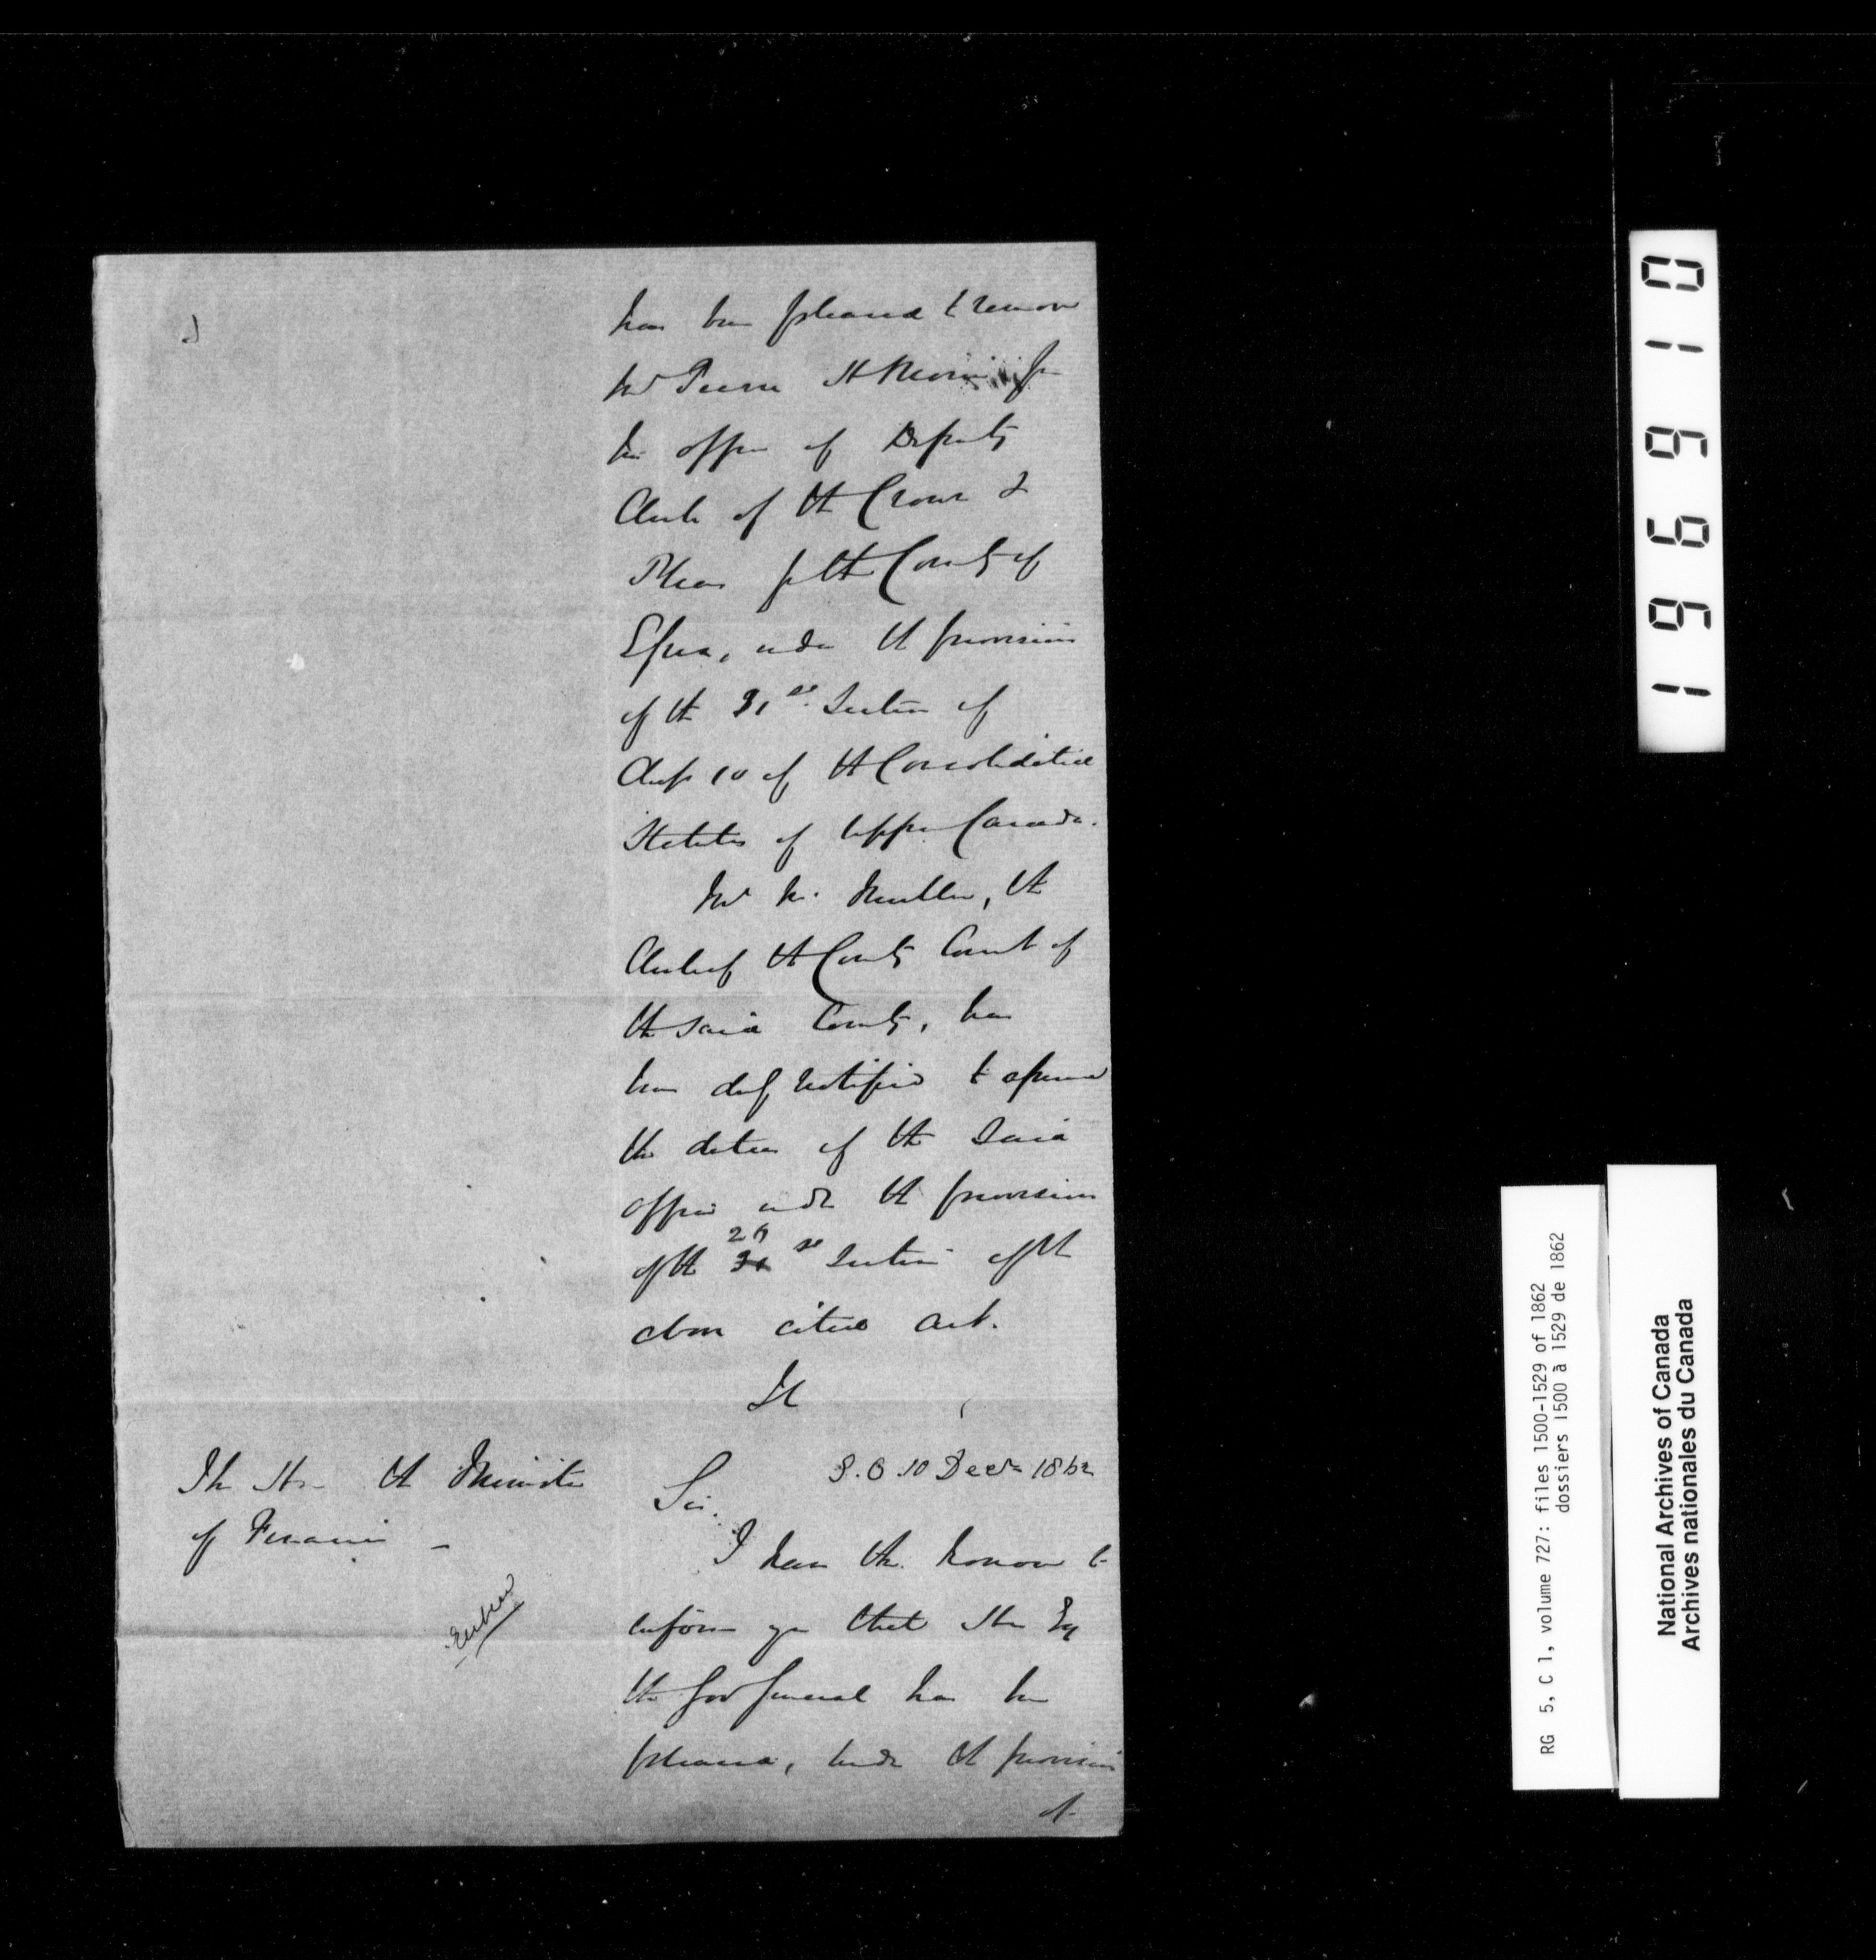 has been pleased to remove
Mr Pierre H Morin from
his office of Deputy
Clerk of the Crown &
Pleas for the County of
Essex, under the provisions
of the 31st Section of
Chap 10 of the Consolidated
Statutes of Upper Canada.
Mr M. Mullen, the
Clerk of the County Court of
the said County, has
been duly notified to assume
the duties of the said
office under the provisions
of the 26 st Section of the
above cited Act.
S. O 10 Decr 1862
The Hon the Minister
of Finance -
Sir.
I have the honour to
inform you that His Ex
the Gov General has been
pleased, under the provisions
of
019691
RG 5, C 1, volume 727: files 1500-1529 of 1862
dossiers 1500 à 1529 de 1862
National Archives of Canada
Archives nationales du Canada